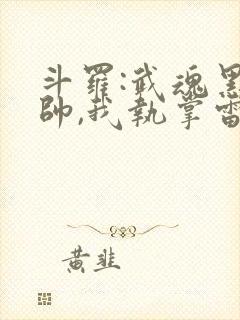 斗羅:武魂黑
帥,我執掌雷
黃韭